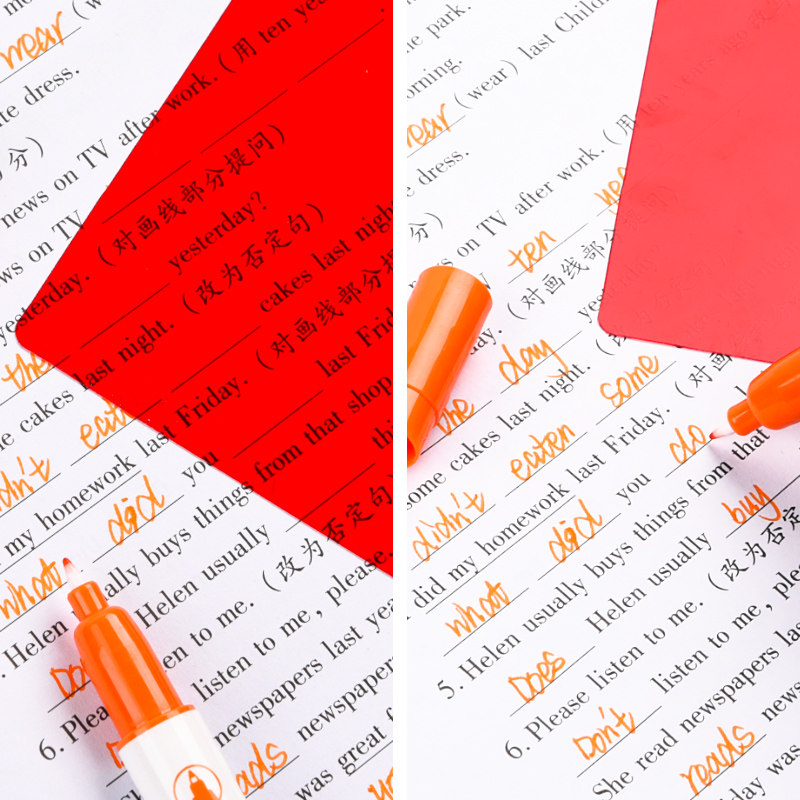 wear (w
te dress.
分）
news on TV after work.（用 ten yea
ws on TV
sterday.（对画线部分提问）
yesterday?
the
last night.（改为否定句）
e cakes last night
cakes last night.（对画线部分提
eaten
last Friday.
my homework last Friday.
did you
from that shop
what
Helen usually buys things from that shop
Helen usually（改为否定句）
en to me.
Does listen to me, please.
6. Please
newspapers last yea
reads newspapers
was great f
the park.
orning.
wear (wear) last Child
e dress.
on TV after work.（用 ten years ago
分）
s on TV ten
day.（对画线部分
the day
some cakes last night.（改为
didn't eaten some
did my homework last Friday.（对画
what did you do
5. Helen usually buys things from that
Does Helen usually buy
6. Please listen to me.（改为否定
Don't listen to me, plea
She read newspapers las
reads news
day was